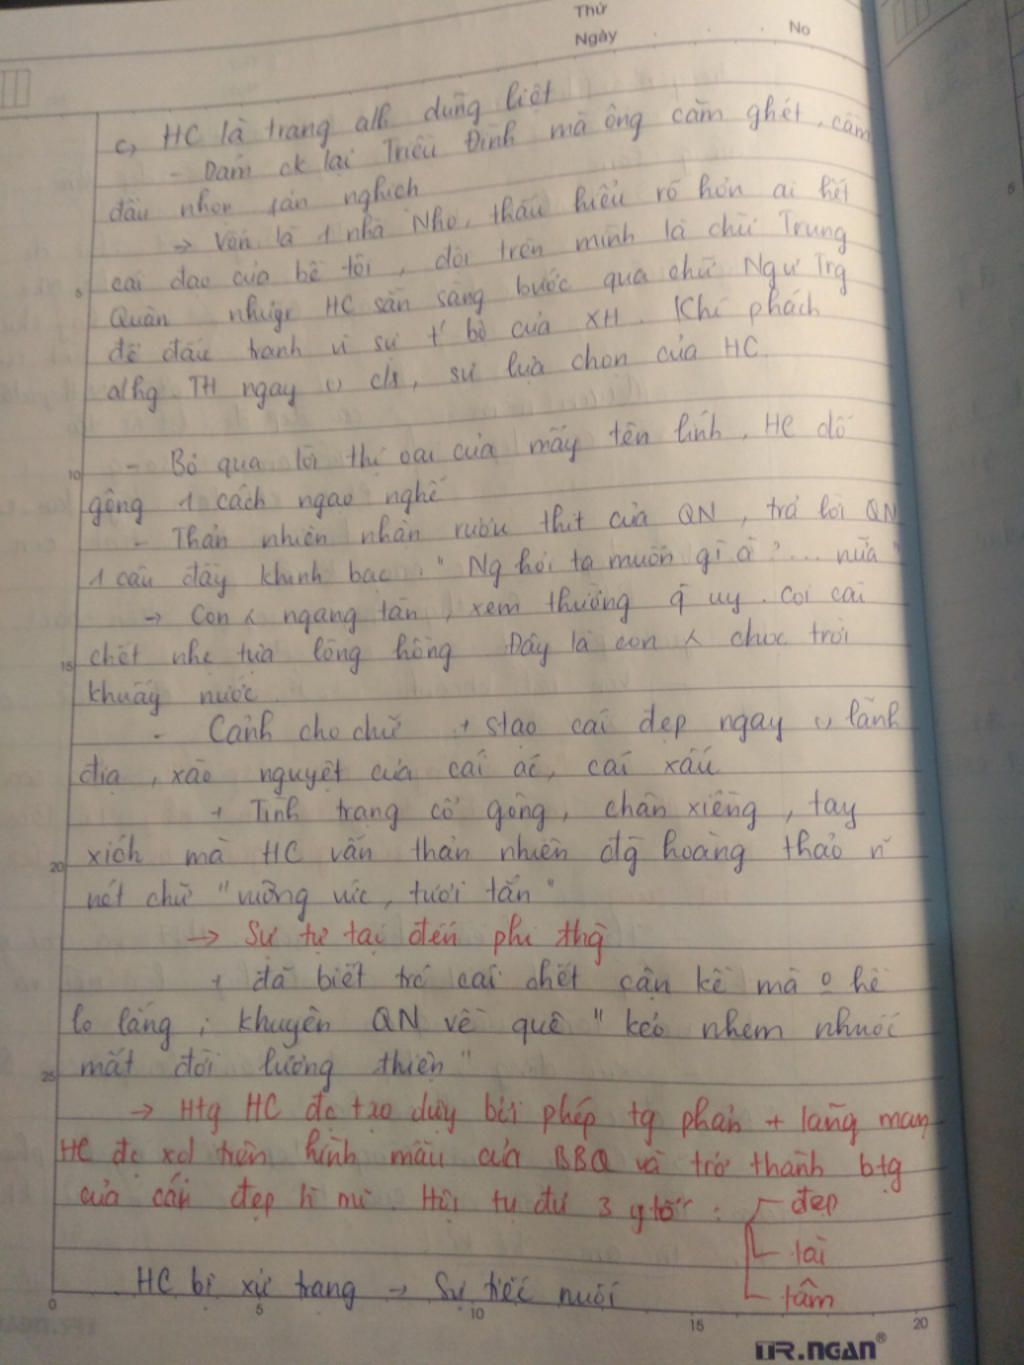 Thứ
Ngày No
c, HC là trang alh dũng liệt
- Dám ck lại Triều Đình mà ông căm ghét, cầm
đầu nhọn fản nghịch
→ Vốn là 1 nhà Nho, thấu hiểu rõ hơn ai hết
cái đạo của bề tôi, đội trên mình là chữ Trung
Quân nhưg HC sẵn sàng bước qua chữ Ngư Trg
để đấu tranh vì sự t' bộ của XH. Khí phách
alhg TH ngay cls, sự lựa chọn của HC.
- Bỏ qua lời thị oai của mấy tên lính, HC dỗ
gông 1 cách ngạo nghễ
- Thản nhiên nhận rượu thịt của QN, trả lời QN
1 câu đầy khinh bạc: "Ng hỏi ta muốn gì à?... nữa"
→ Con ngang tàn, xem thường q̃ uy. Coi cái
chết nhẹ tựa lông hồng Đây là con chọc trời
khuấy nước
- Cảnh cho chữ + stạo cái đẹp ngay lãnh
địa, xào nguyệt của cái ác, cái xấu
+ Tình trạng cổ gông, chân xiềng, tay
xích mà HC vẫn thản nhiên đg̃ hoàng thảo n~
nét chữ "vuông vức, tươi tắn"
→ Sự tự tại đến phi thg̀
+ đã biết trc cái chết cận kề mà 0 hề
lo lắng; khuyên QN về quê "kẻo nhem nhuốc
mất đời lương thiện"
→ Htg HC đc tạo dựg bởi phép tg phản + lãng mạn
HC đc xd trên hình mẫu của BBQ và trở thành btg
của cái đẹp lí mĩ. Hội tụ đủ 3 ytố: đẹp
tài
tâm
HC bị xử trảng → Sự tiếc nuối
0 5 10 15 20
TR.NGAN®